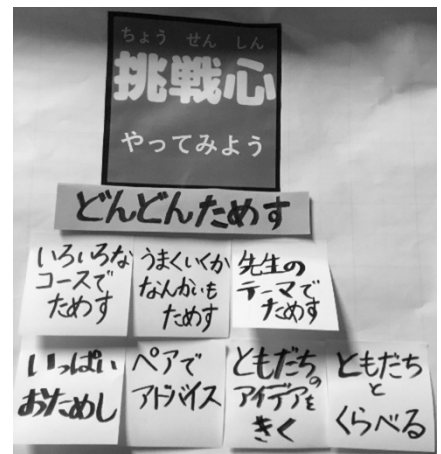 ちょう せん しん
挑戦心
やってみよう
どんどんためす
いろいろな
コースで
ためす
うまくいくか
なんかいも
ためす
先生の
テーマで
ためす
いっぱい
おためし
ペアで
アドバイス
ともだちの
アイデアを
きく
ともだち
と
くらべる